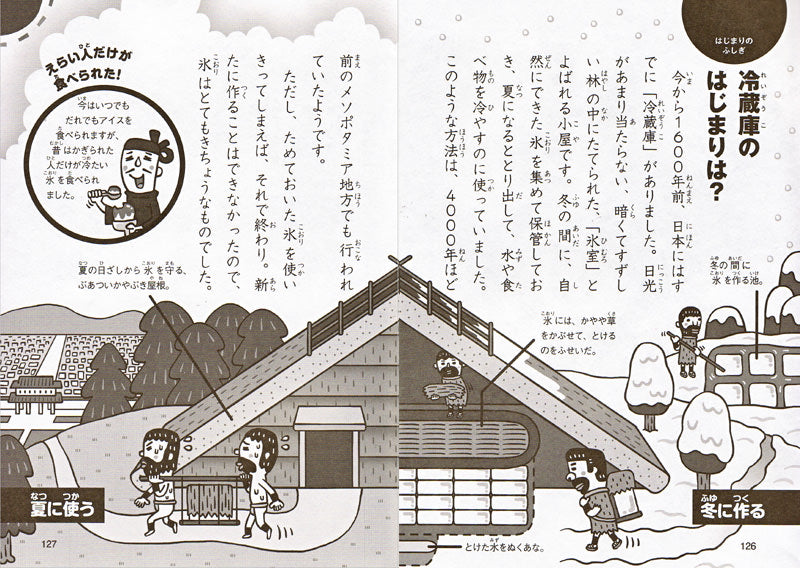 はじまりの
ふしぎ
冷蔵庫の
はじまりは？
今から1600年前、日本にはす
でに「冷蔵庫」がありました。日光
があまり当たらない、暗くてすずし
い林の中にたてられた、「氷室」と
よばれる小屋です。冬の間に、自
然にできた氷を集めて保管してお
き、夏になるととり出して、水や食
べ物を冷やすのに使っていました。
このような方法は、4000年ほど
前のメソポタミア地方でも行われ
ていたようです。
ただし、ためておいた氷を使い
きってしまえば、それで終わり。新
たに作ることはできなかったので、
氷はとてもきちょうなものでした。
えらい人だけが
食べられた！
今はいつでも
だれでもアイスを
食べられますが、
昔はかぎられた
人だけが冷たい
氷を食べられ
ました。
冬の間に
氷を作る池。
氷には、かやや草
をかぶせて、とける
のをふせいだ。
夏の日ざしから氷を守る、
ぶあついかやぶき屋根。
冬に作る
とけた水をぬくあな。
126
夏に使う
127